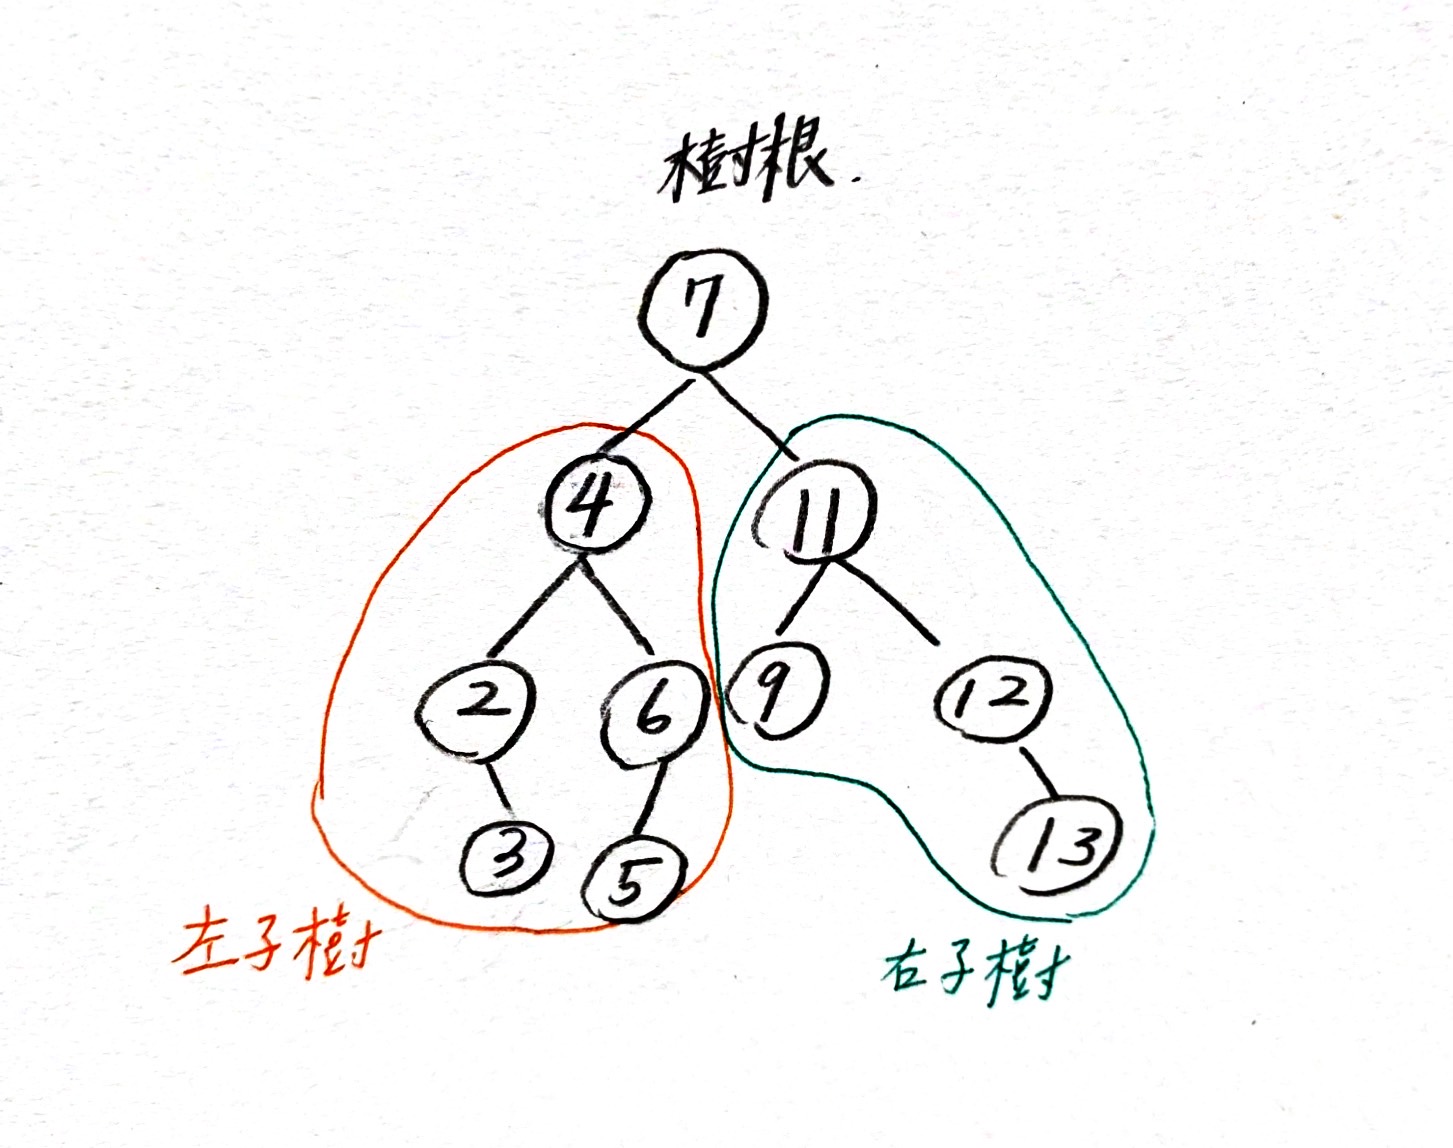 樹根.
7
4 11
2 6 9 12
3 5 13
左子樹
右子樹